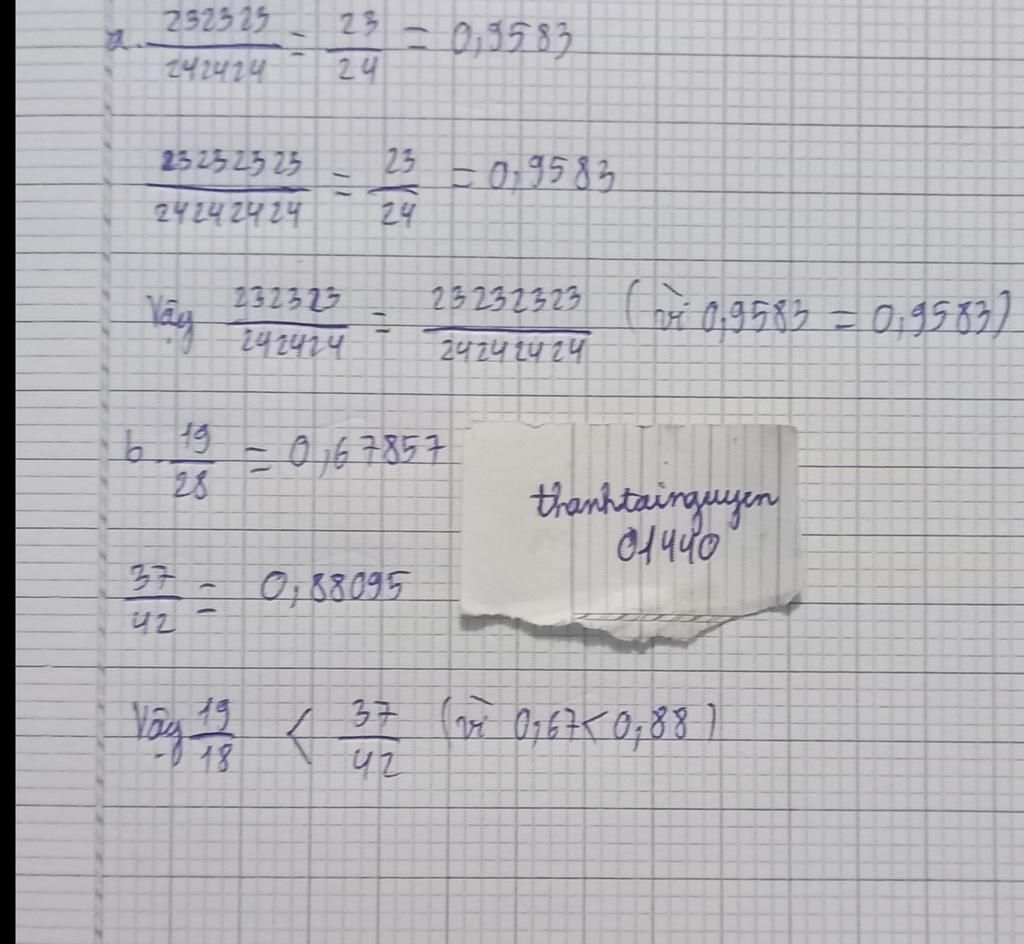 a. 232323/242424 = 23/24 = 0,9583
23232323/24242424 = 23/24 = 0,9583
Vậy 232323/242424 = 23232323/24242424 (vì 0,9583 = 0,9583)
b. 19/28 = 0,67857
thanhtainguyen
01440
37/42 = 0,88095
Vậy 19/18 < 37/42 (vì 0,67 < 0,88)